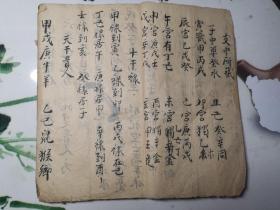 支中所藏
子中單癸水
丑己癸辛同
寅宮甲丙戊
卯宮獨乙木
辰宮乙戊癸
巳宮庚丙戊
午宮有丁己
未宮
申宮庚戊壬
酉宮獨辛金
戌宮辛丁戊
亥宮甲壬
十干祿
甲祿到寅 乙祿到卯 丙戊祿在巳
丁己祿居午 庚祿居申 辛祿到酉
壬祿到亥 癸祿居子
天乙貴人
甲戊庚牛羊 乙己鼠猴鄉